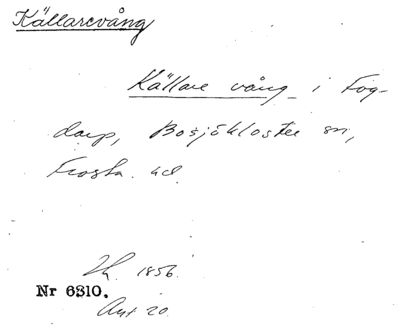 Källarevång
Källare vång i Fog-
darp, Bosjökloster sn,
Frosta hd.
1856.
Nr 6310.
20.